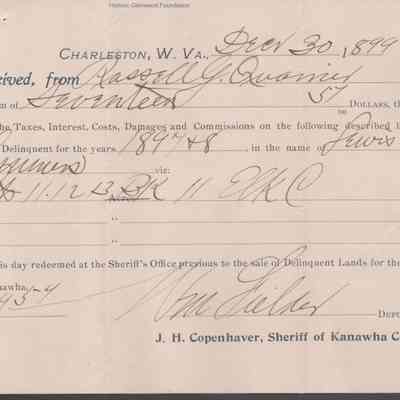 Historic Glenwood Foundation
CHARLESTON, W. VA., Decr 30, 1899
eived, from Russell G. Quarrier
m of Seventeen 57 DOLLARS, th
100
he Taxes, Interest, Costs, Damages and Commissions on the following described l
Delinquent for the years 1897 & 8, in the name of Lewis
viz:
11. 12 & 13 BK 11 Elk C
"
"
is day redeemed at the Sheriff's Office previous to the sale of Delinquent Lands for the
nawha
Wm Fielder
DEPU
J. H. Copenhaver, Sheriff of Kanawha C